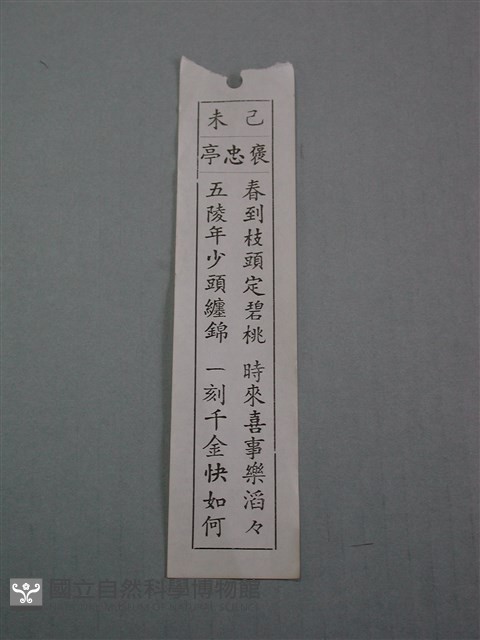 己未
褒忠亭
春到枝頭定碧桃　時來喜事樂滔々
五陵年少頭纏錦　一刻千金快如何
國立自然科學博物館